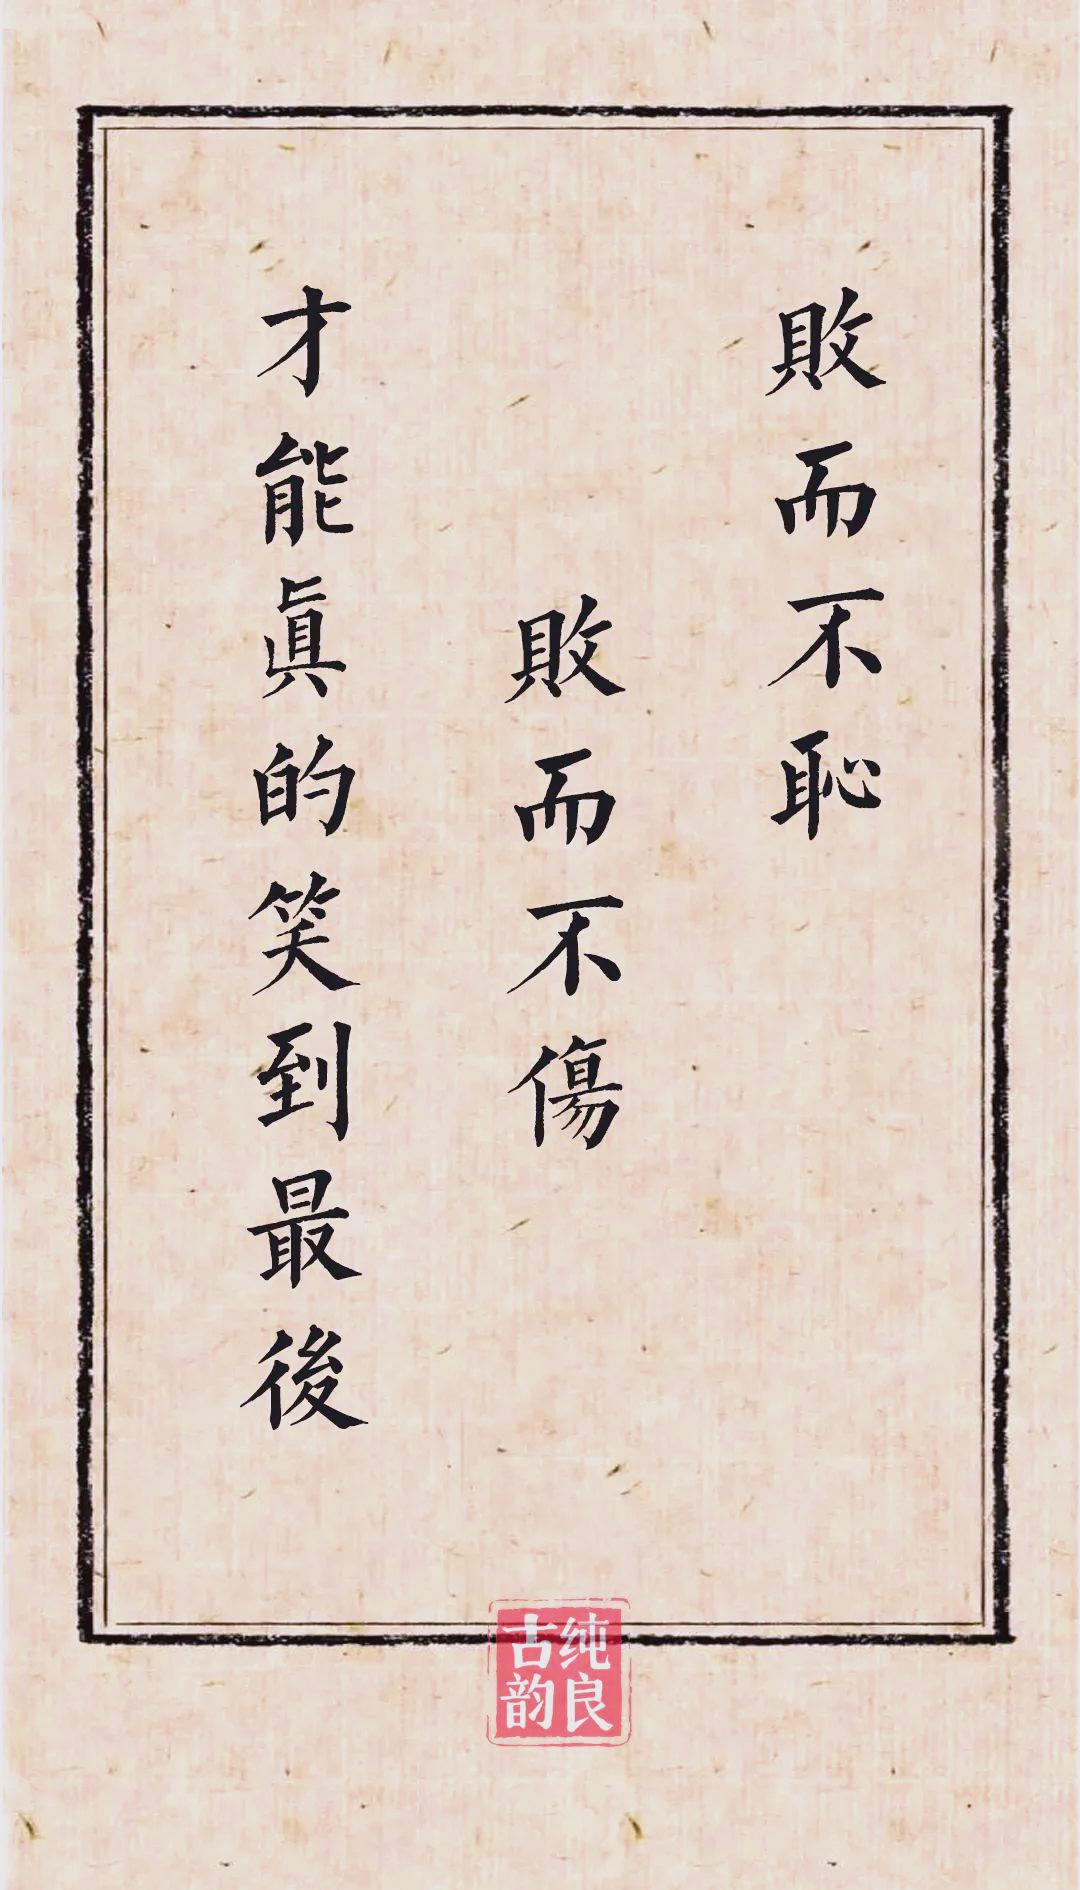 敗而不恥
敗而不傷
才能眞的笑到最後
纯良
古韵